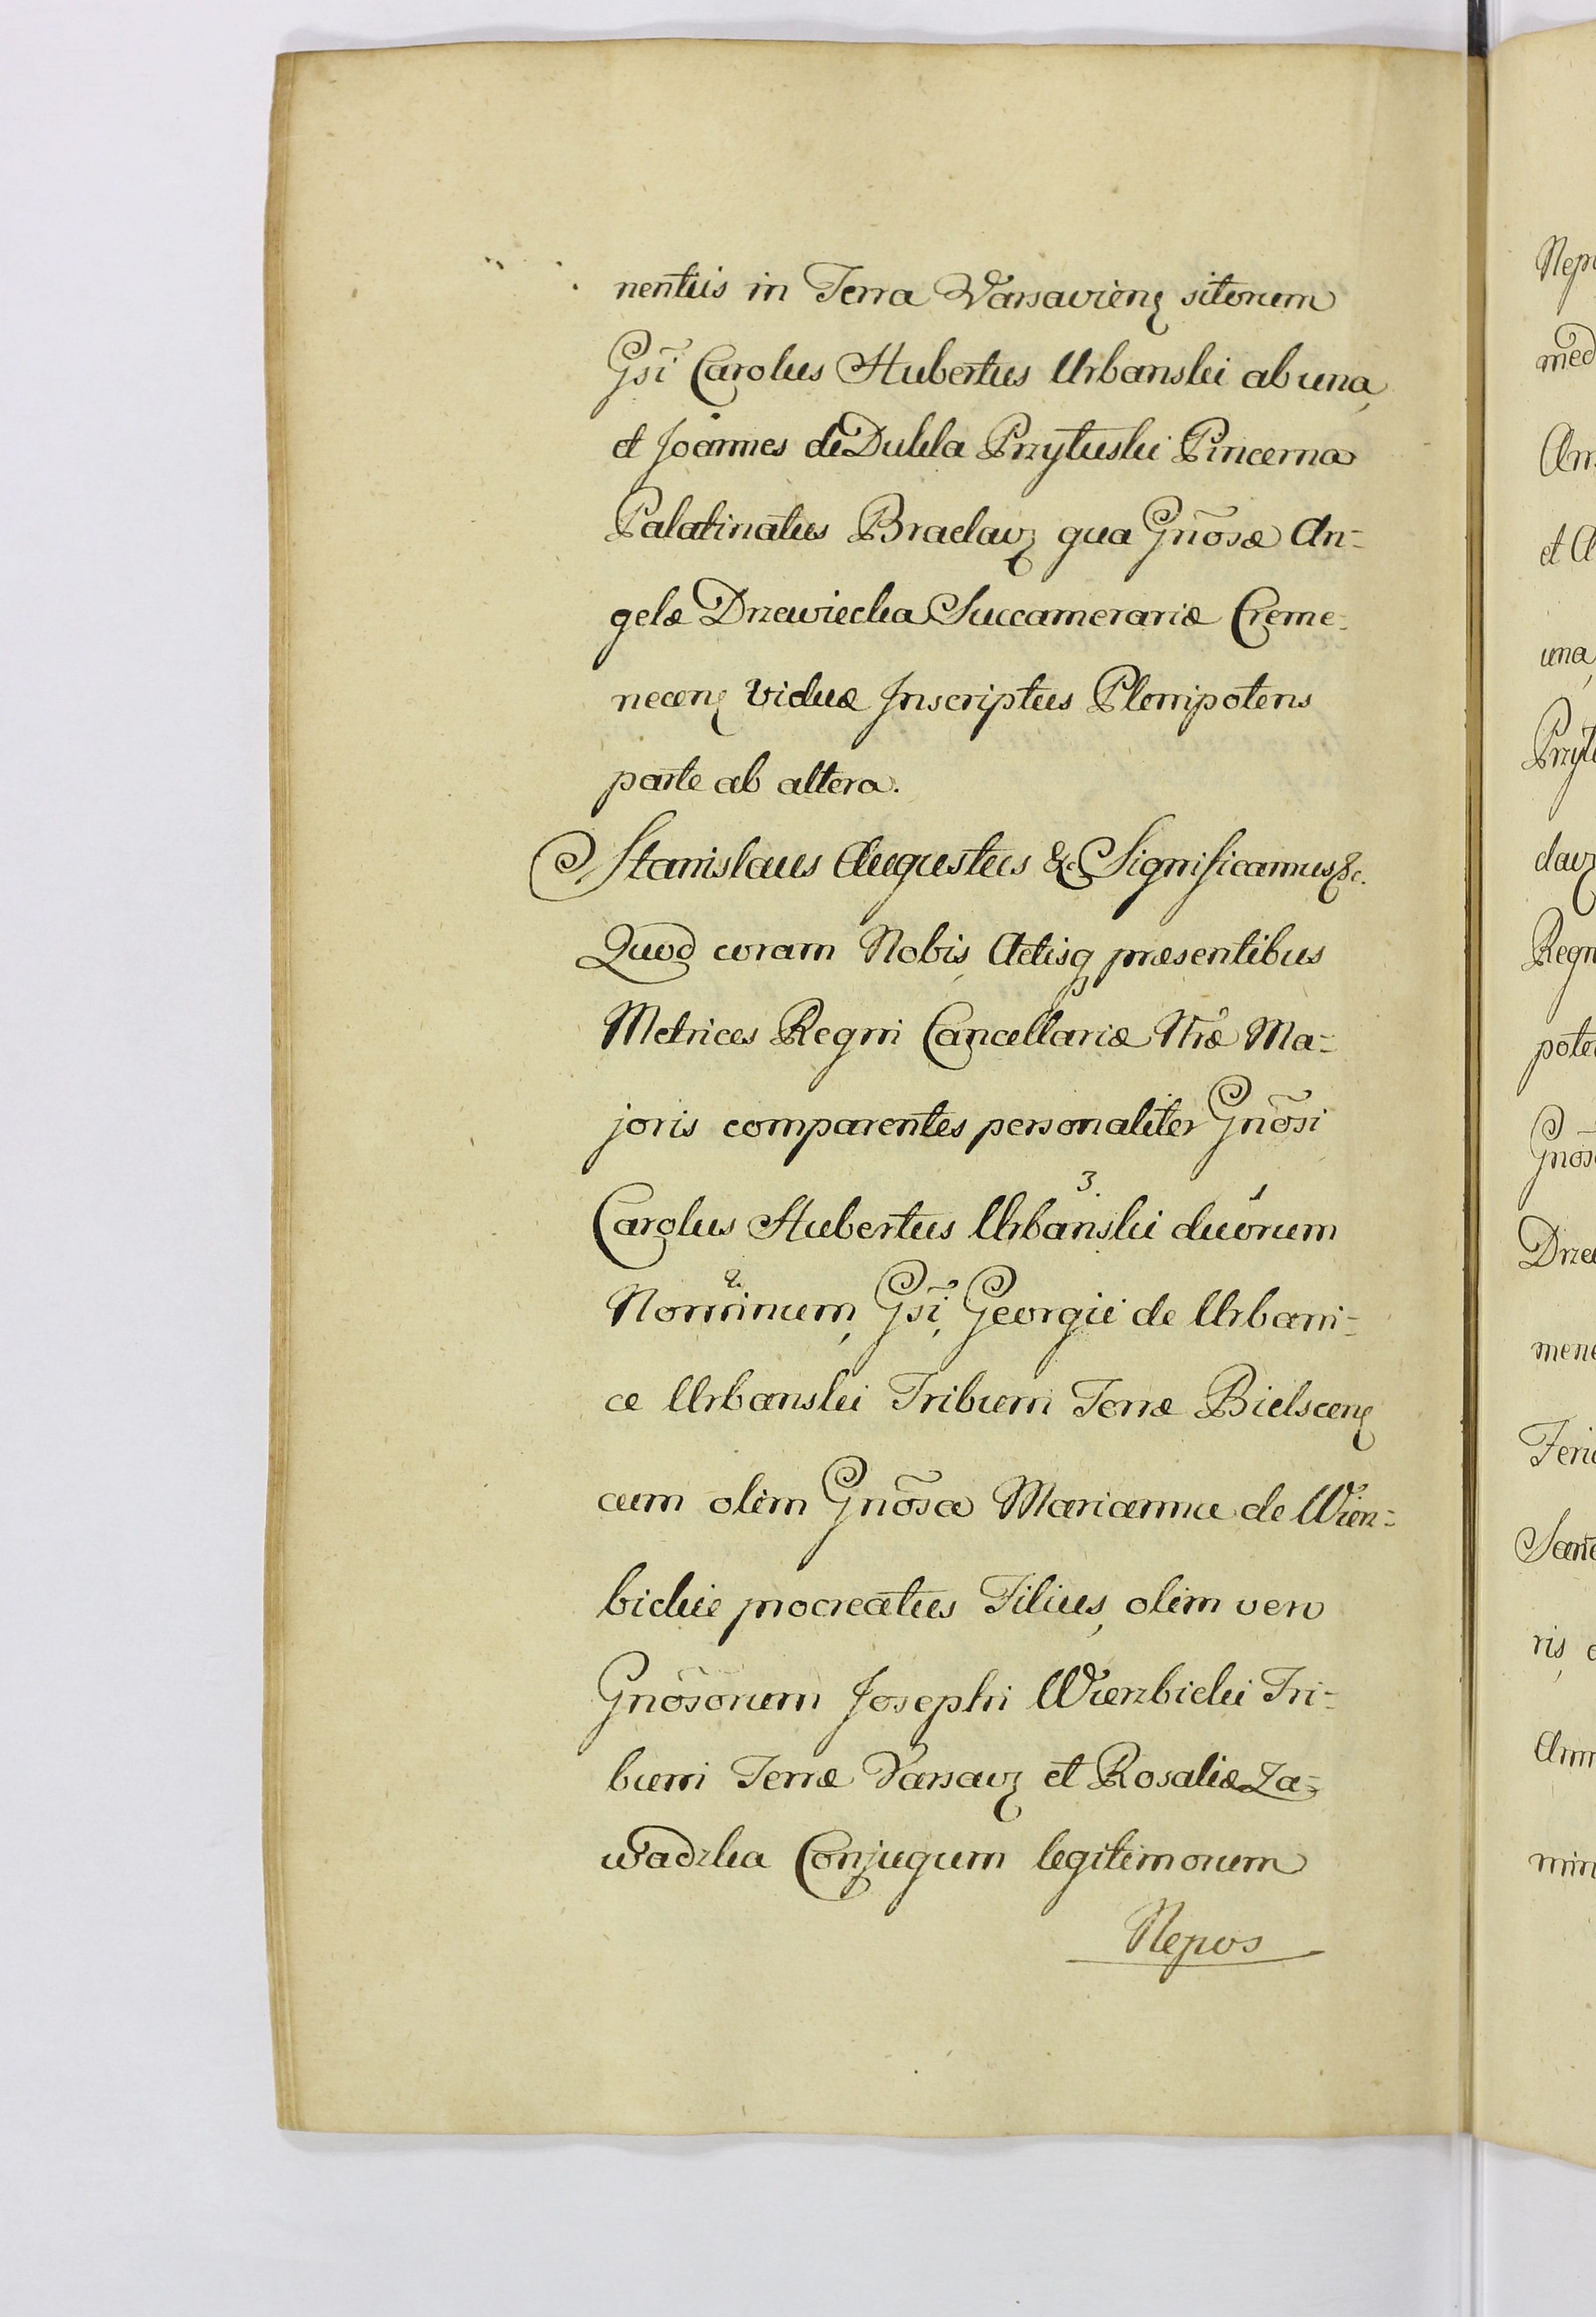 nentiis in Terra Varsavienę sitorum
Gsi Carolus Hubertus Urbanski ab una,
et Joannes de Dukla Przyłuski Pincerna
Palatinatus Braclavꝫ qua Gnõsæ An=
gelæ Drzewiecka Succamerariæ Creme=
necenę Viduæ Inscriptus Plenipotens
parte ab altera.
Stanislaus Augustus &c Significamus &c.
Quod coram Nobis, Actisq præsentibus
Metrices Regni Cancellariæ Nræ Ma=
joris comparentes personaliter Gnõsi
3. 1
Carolus Hubertus Urbanski duorum
2.
Nominum, Gsi, Georgii de Urbani=
ce Urbanski Tribuni Terræ Bielscenę
cum olim Gnõsa Marianna de Wierz=
bickie procreatus Filius, olim vero
Gnõsorum Josephi Wierzbicki Tri=
buni Terræ Varsavꝫ et Rosaliæ Za=
wadzka Conjugum legitimorum
Nepos
Nep
med
An
et A
una,
Przył
clavꝫ
Regn
pote
Gnõs
Drze
mene
Feri
San
ris,
Ann
min